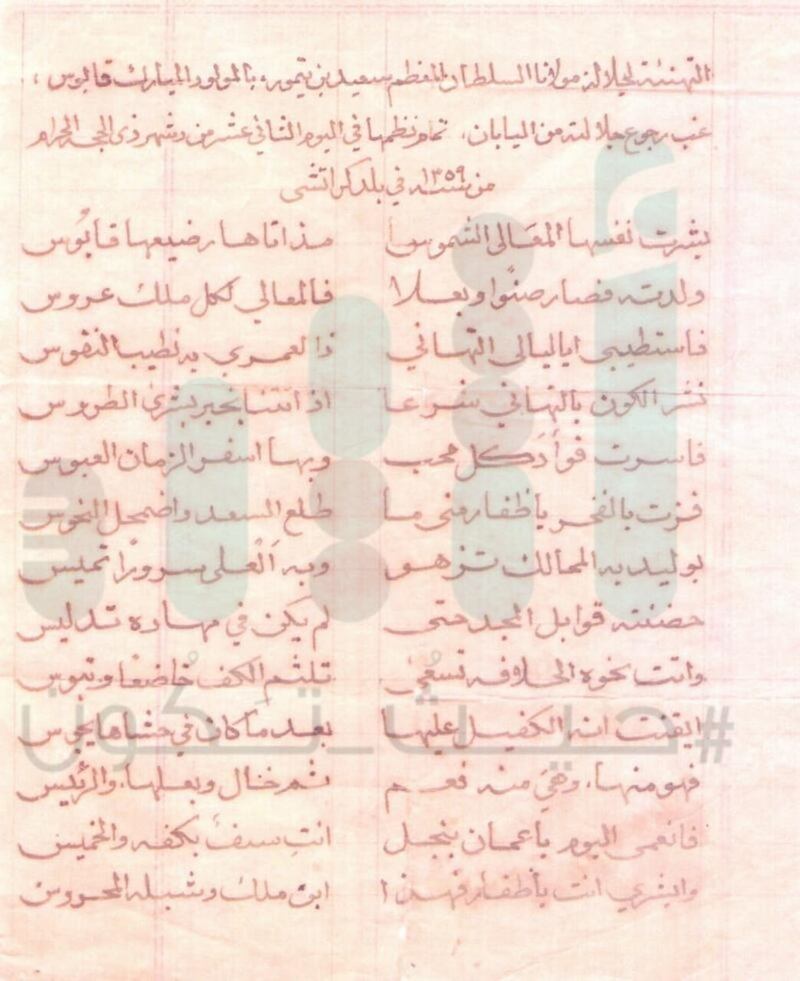 التهنئة لجلالة مولانا السلطان المعظم سعيد بن تيمور، بالمولود المبارك قابوس،
غب رجوع جلالته من اليابان. تمام نظمها في اليوم الثاني عشر من شهر ذى الحجة الحرام
من سنة ١٣٥٩ في بلد كراتشى
بشرت نفسها المعالى الشموسا مذ اتاها رضيعها قابُوس
ولدته فصار صنوًا وبعلا فالمعالي لكل ملك عروس
فاستطيبى ايا ليالى التهاني ذا لعمري به تطيب النفوس
نشر الكون بالتهاني شرعا اذ اتتنا بخبر بشرى الطروس
فاسرت فوأد كل محب وبها اسفر الزمان العبوس
فزت بالفخر يا ظفار منى ما طلع السعد واضمحل النحوس
بوليد به الممالك تزهو وبه العلى سرورًا تميس
حضنته قوابل المجد حتى لم يكن في مهاده تدليس
واتت نحوه الخلافه تسعى تلثم الكف خاضعًا وتبوس
ايقنت انه الكفيل عليها بعد ما كان في حشاها يجوس
فهو منها. وهي منه نعم ثم خنال وبعلها. والرئيس
فانعمى اليوم يا عمان بنجل انت سيف بكفه والخميس
وابشري انت يا ظفار فهذا ابن ملك وشبله المحروس
#حيث_تكون
أثير